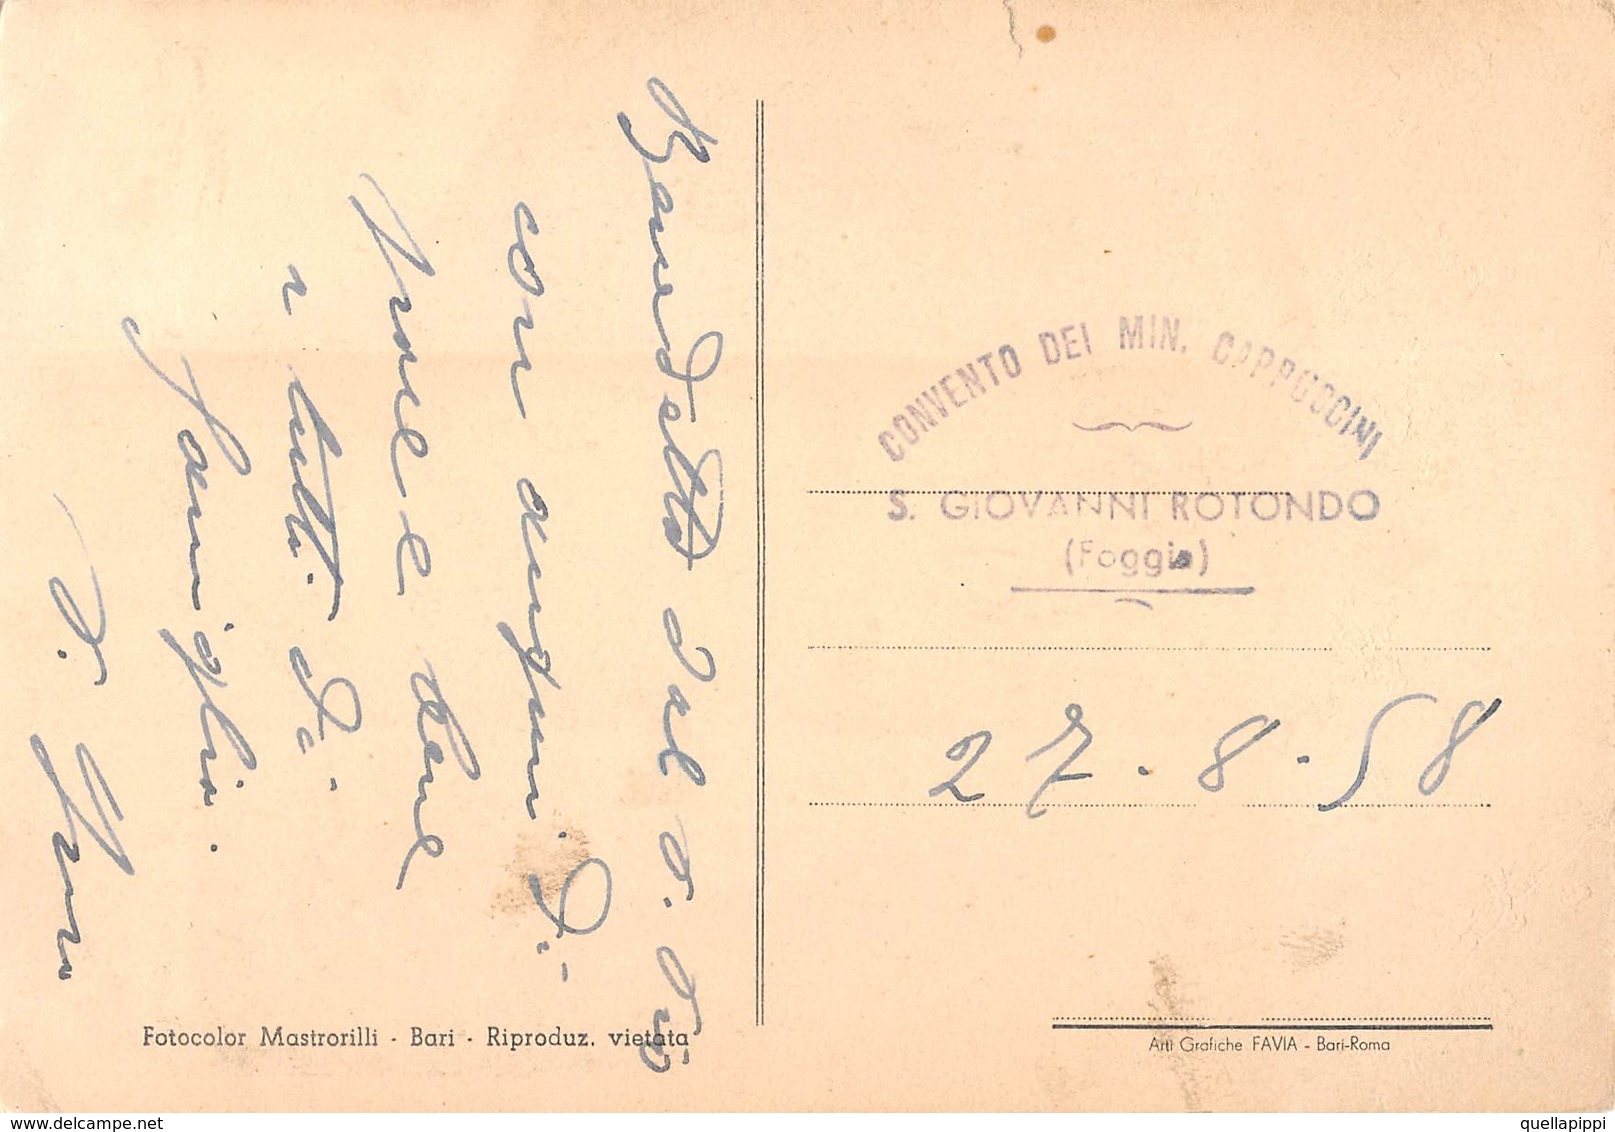 Benedetto dal P. Pio
con auguri di
ogni bene
a tutti di
famiglia.
CONVENTO DEI MIN. CAPPUCCINI
S. GIOVANNI ROTONDO
(Foggia)
27.8.58
Fotocolor Mastrorilli - Bari - Riproduz. vietata
Arti Grafiche FAVIA - Bari-Roma
quellapippi